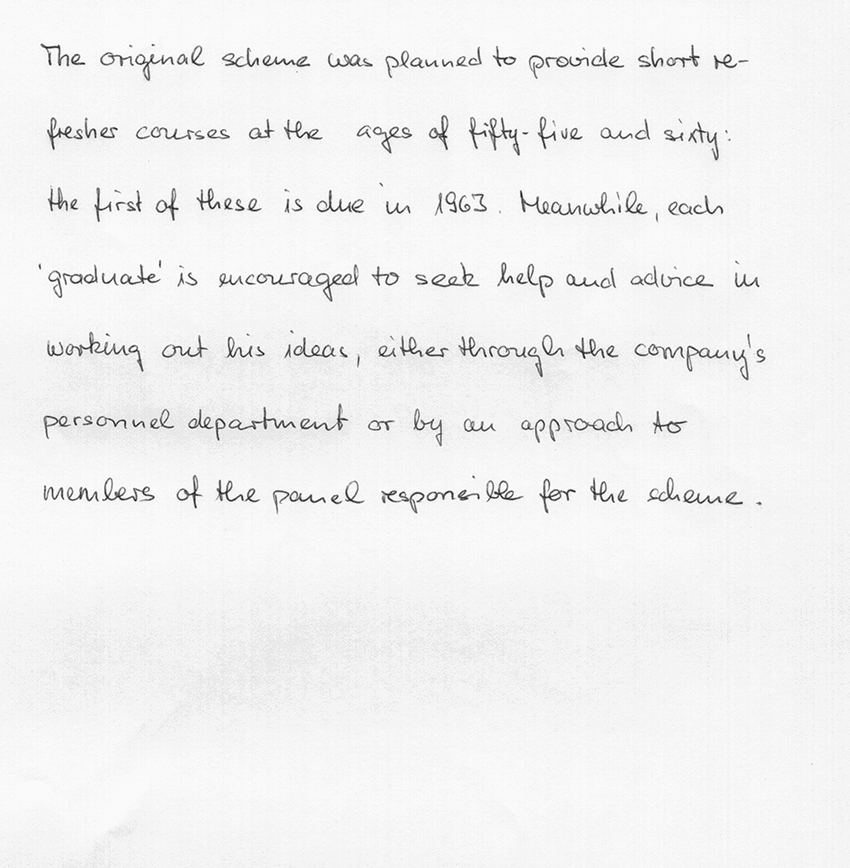 The original scheme was planned to provide short re-
fresher courses at the ages of fifty-five and sixty:
the first of these is due in 1963. Meanwhile, each
'graduate' is encouraged to seek help and advice in
working out his ideas, either through the company's
personnel department or by an approach to
members of the panel responsible for the scheme.